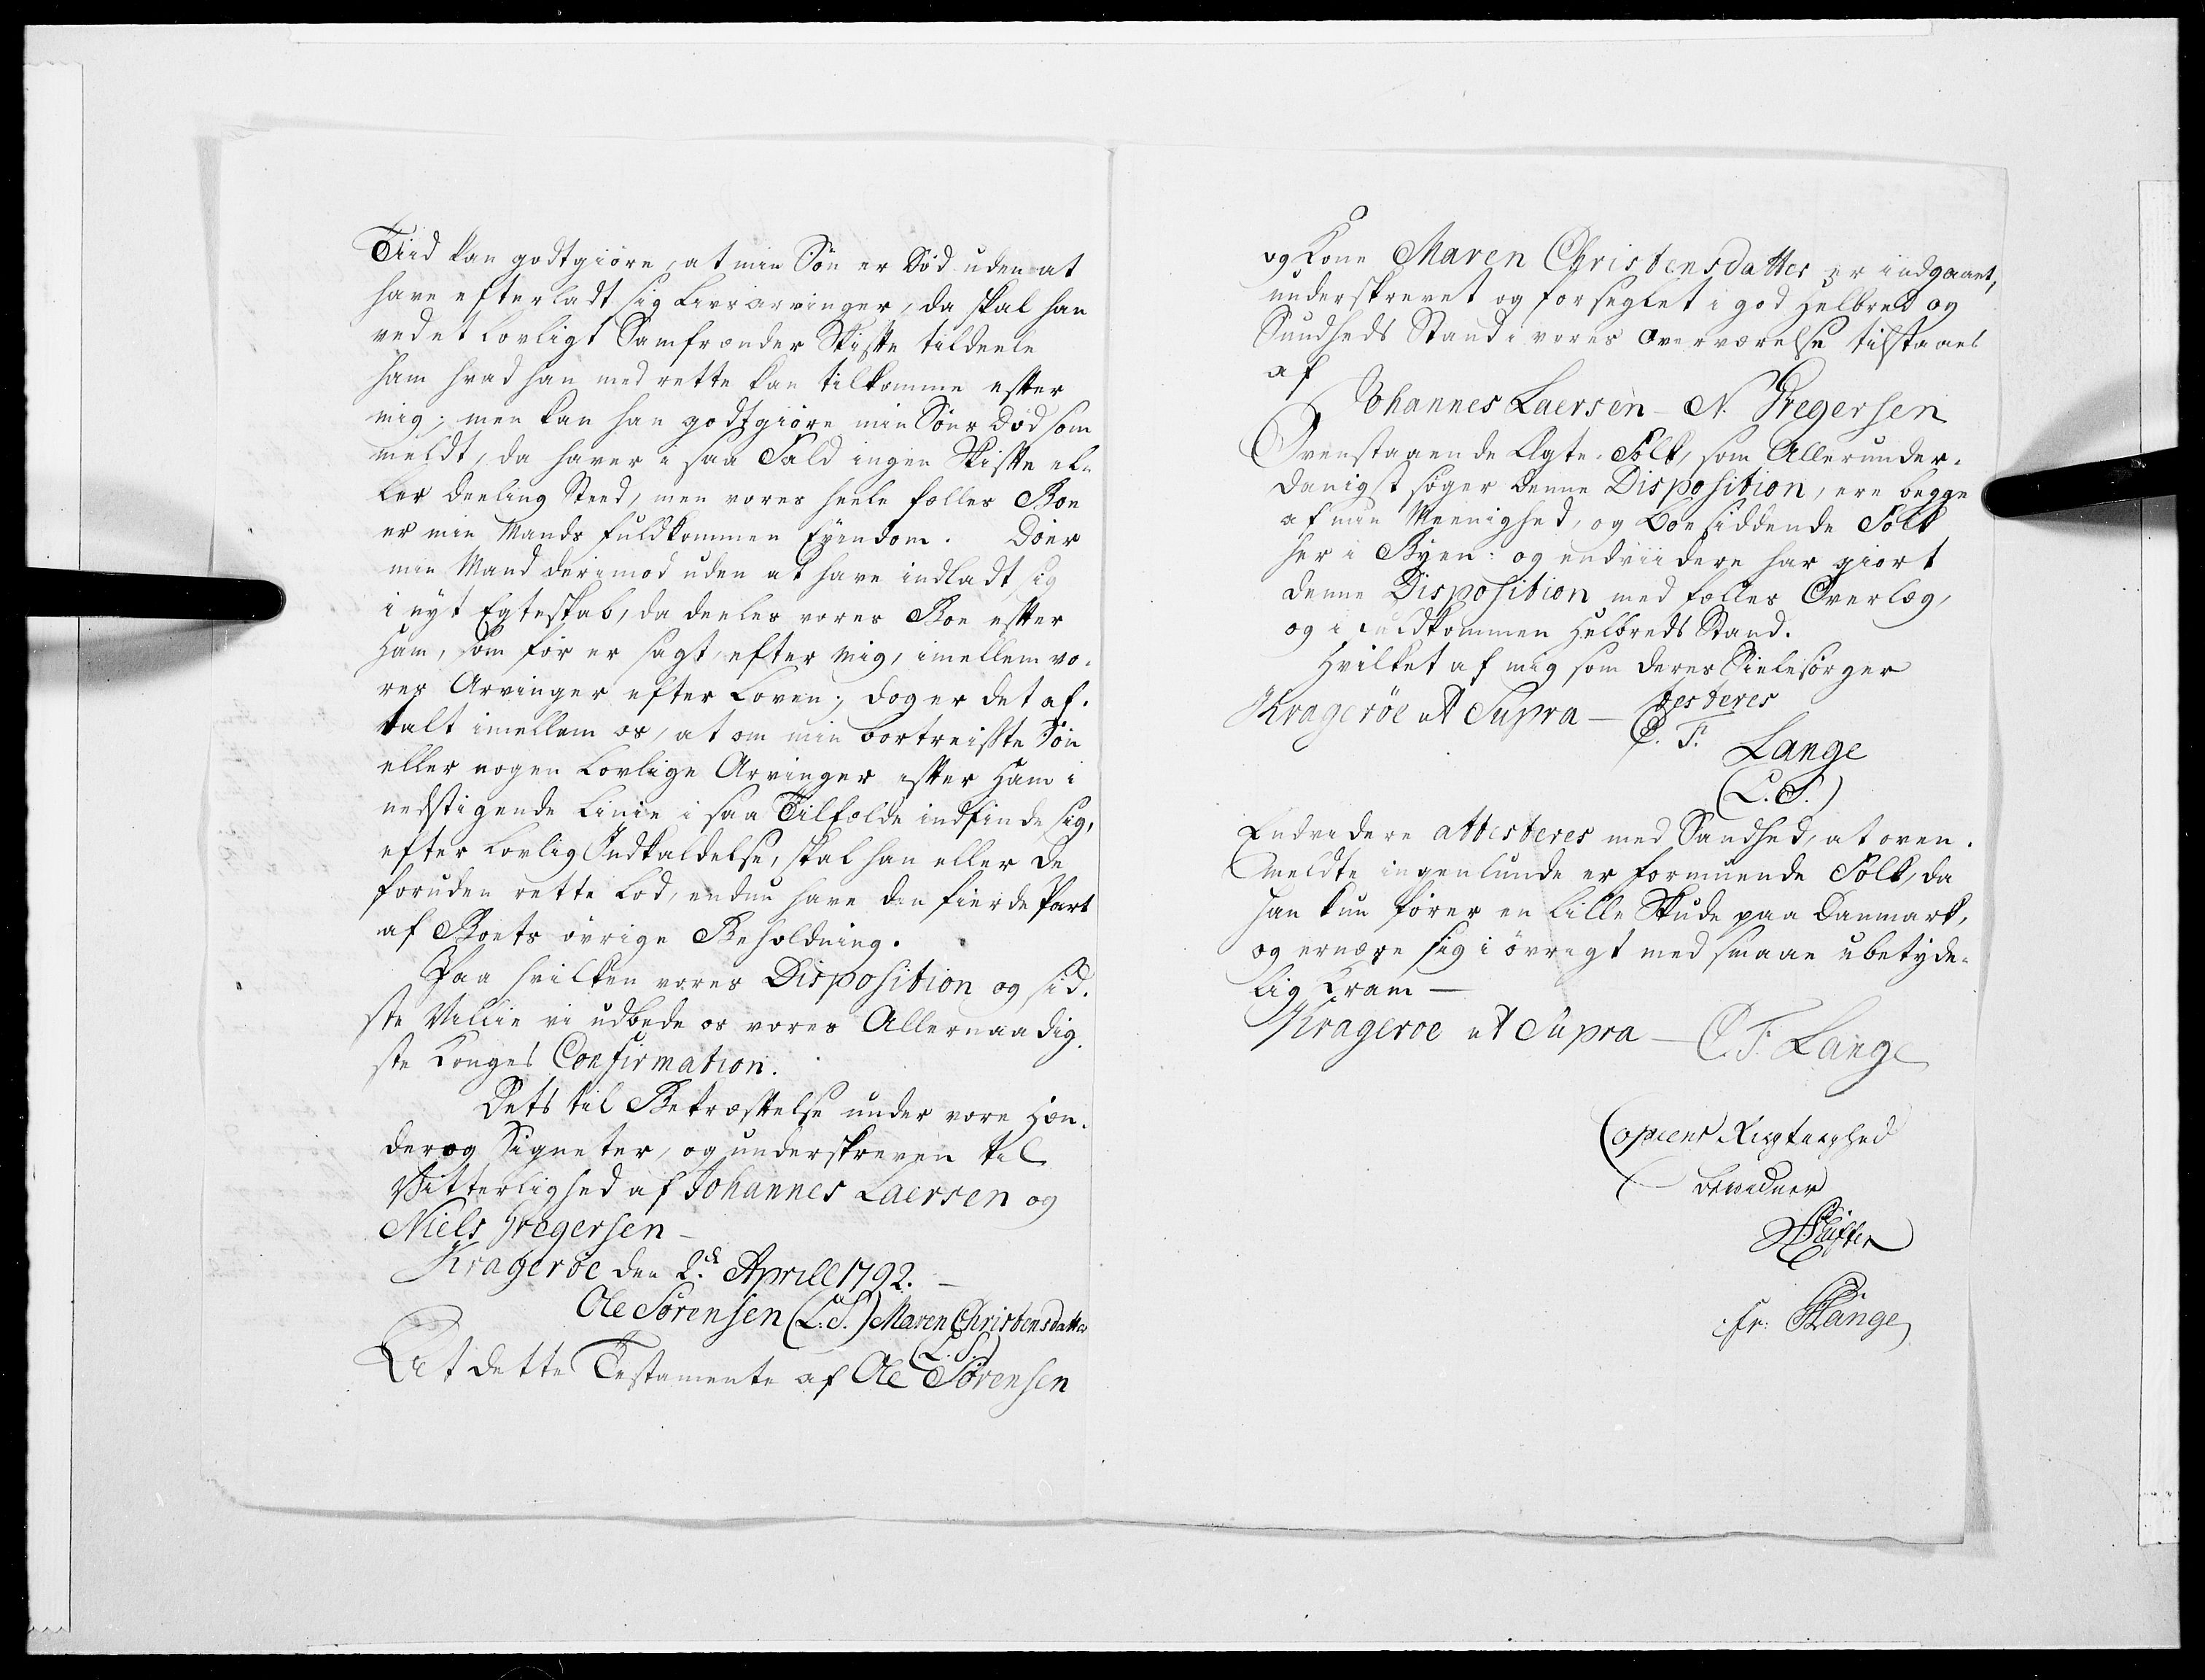 Tiid kan godtgiöre, at min Sön er Död uden at
have efterladt sig Livsarvinger, da skal han
ved et Lovligt Samfrænder Skifte tildeele
ham hvad han med rette kan tilkomme efter
mig; men kan han godtgiöre min Söns Död som
meldt, da haver i saa Fald ingen Skifte el-
ler Deeling Sted, men vores heele fælles Boe
er min Mands fuldkommen Eyendom. Döer
min Mand derimod uden at have indladt sig
i nyt Egteskab, da deeles vores Boe efter
Ham, som för er sagt, efter Mig, imellem vo-
res Arvinger efter Loven; dog er det af-
talt imellem os, at om min bortreiste Sön
eller nogen Lovlige Arvinger efter Ham i
nedstigende Linie i saa Tilfælde indfinde sig,
efter Lovlig Indkaldelse, skal han eller de
foruden rette Lod, endnu have den fierde Part
af Boets övrige Beholdning.
Paa hvilken vores Disposition og sid-
ste Villie vi udbede os vores Allernaadig-
ste Konges Confirmation.
Dets til Bekræftelse under vore Hæn-
der og Signeter, og underskreven til
Vitterlighed af Johannes Laersen og
Niels Gregersen -
Krageröe den 2de Aprill 1792. -
Ole Sörensen (L.S.) Maren Christensdatter
(L.S.)
At dette Testamente af Ole Sörensen
og Kone Maren Christensdatter er indgaaet,
underskrevet og forseglet i god Helbred og
Sundheds Stand i vores Overværelse tilstaaes
af
Johannes Laersen - N. Gregersen
Ovenstaaende Ægte-Folk, som Allerunder-
danigst söger denne Disposition, ere begge
af min Meenighed, og Boesiddende Folk
her i Byen: og endviidere har giort
denne Disposition med fælles Overlæg,
og i fuldkommen Helbreds Stand.
Hvilket af mig som deres Sielesörger
testeres
Krageröe ut Supra - C. F. Lange
(L.S.)
Endvidere attesteres med Sandhed, at oven-
meldte ingenlunde er formuende Folk, da
han kun förer en lille Skude paa Danmark,
og ernære sig i övrigt med smaae ubetyde-
lig Kram -
Krageroe ut Supra - C. F. Lange
Copiens Rigtighed
bevidner
fr: Lange